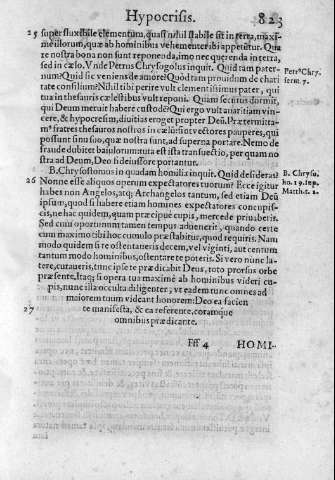 Hypocrisis. 823
25 super fluxibile elementum, quasi nihil stabile sit in terra, maxi-
mè illorum, quæ ab hominibus vehementer ibi appetũtur. Qua
re nostra bona non sunt reponenda, imo nec querenda in terra,
sed in cælo. Vnde Petrus Chrysogolus inquit. Quid tam pater-
num? Quid sic veniens de amore? Quòd tam prouidum de chari
tate consilium? Nihil tibi perire vult clementissimus pater, qui
tua in thesauris cælestibus vult reponi. Quam securus dormit,
qui Deum meruit habere custodẽ? Qui ergo vult auaritiam vin-
cere, & hypocrisim, diuitias eroget propter Deũ. Prætermitta-
mꝰ fratres thesauros nostros in cælũ: sint vectores pauperes, qui
possunt sinu suo, quæ nostra sunt, ad superna portare. Nemo de
fraude dubitet baiulorum: tuta est ista transuectio, per quam no
stra ad Deum, Deo fideiussore portantur.
Petrꝰ Chry.
serm. 7.
B. Chrysostomus in quadam homilia inquit. Quid desideras?
26 Nonne esse aliquos operum expectatores tuorum? Ecce igitur
habes non Angelos, atq; Archangelos tantum, sed etiam Deũ
ipsum, quod si habere etiam homines expectatores concupis-
cis, ne hac quidem, quam præcipuè cupis, mercede priuaberis.
Sed cum oportunum tamen tempus aduenerit, quando certe
cum maximo tibi hoc cumulo præstabitur, quod requiris. Nam
modo quidem si te ostentaueris decem, vel viginti, aut centum
tantum modo hominibus, ostentare te poteris. Si vero nunc la-
tere, curaueris, tunc ipse te prædicabit Deus, toto prorsus orbe
præsente. Itaq; si opera tua maximè ab hominibus videri cu-
pis, nunc illa occulta diligenter, vt eadem tunc omnes ad
maiorem tuum videant honorem: Deo ea facien
27 te manifesta, & ea referente, coramque
omnibus prædicante.
B. Chryso.
ho. 19. sup.
Matth. t. 2.
Fff 4 HOMI-